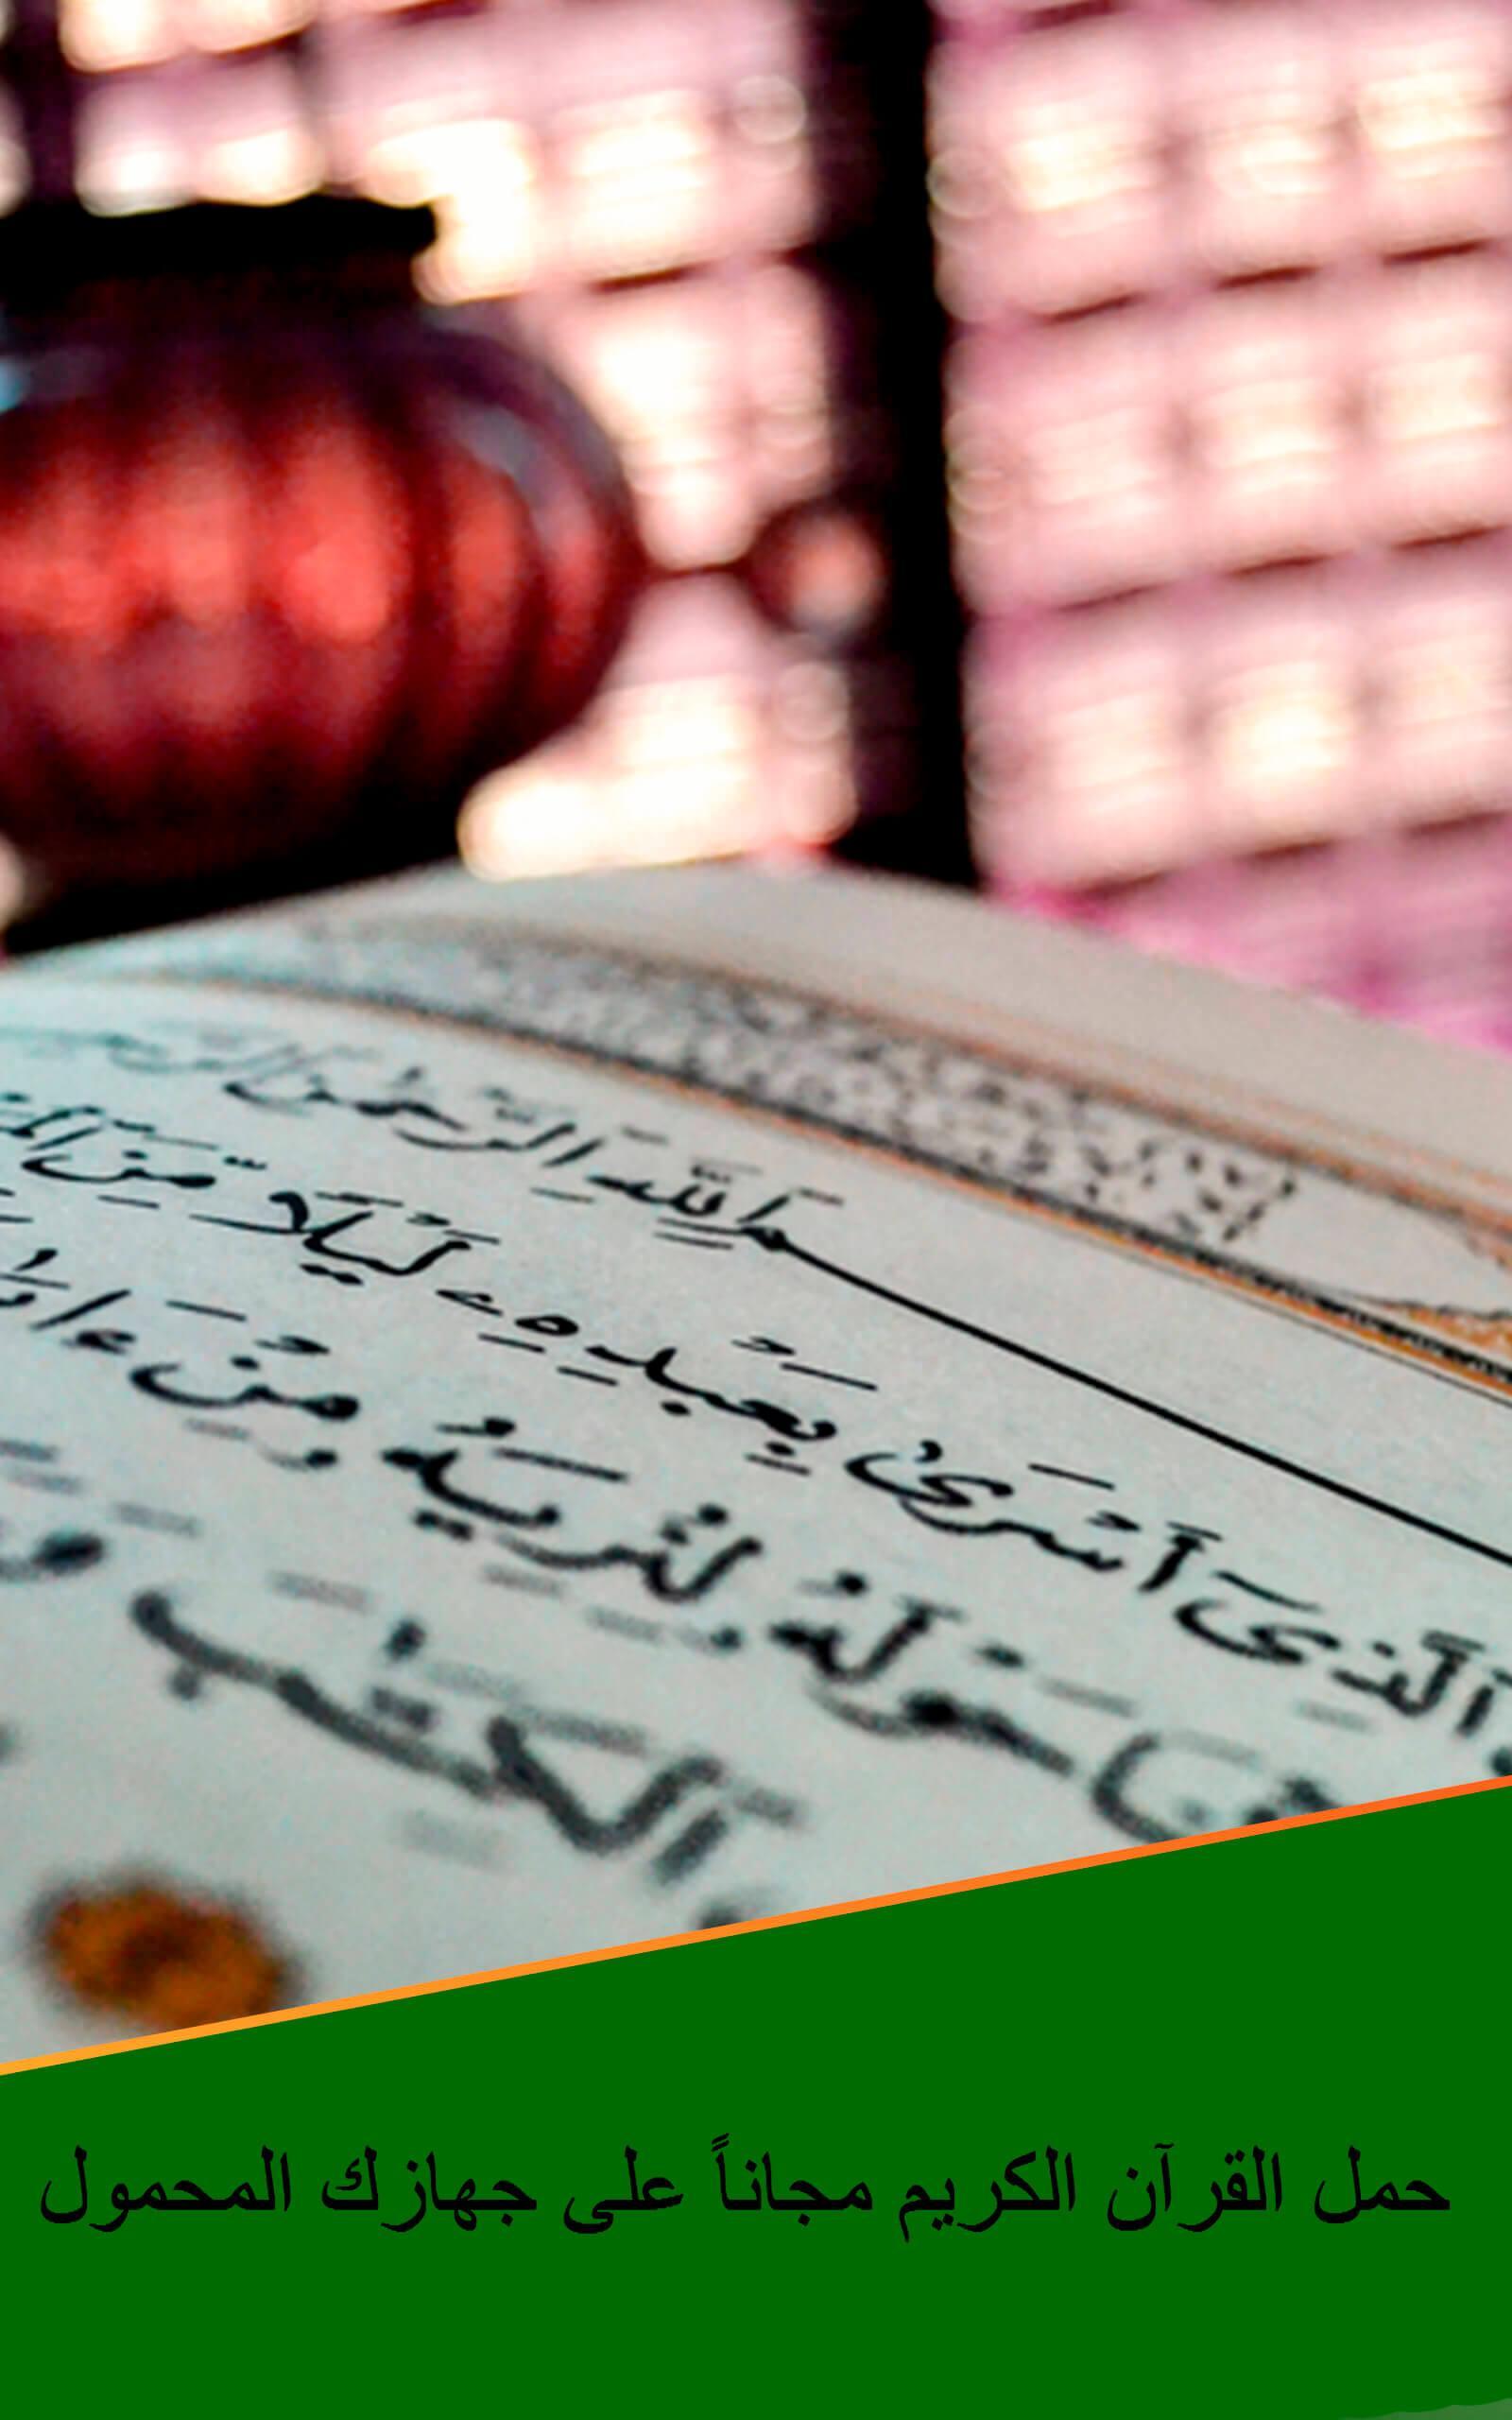 بسم الله الرحمن الرحيم
ٱلَّذِىٓ أَسْرَىٰ بِعَبْدِهِۦ لَيْلًا مِّنَ
حَوْلَهُۥ لِنُرِيَهُۥ مِنْ
ٱلْكِتَٰبَ
حمل القرآن الكريم مجاناً على جهازك المحمول